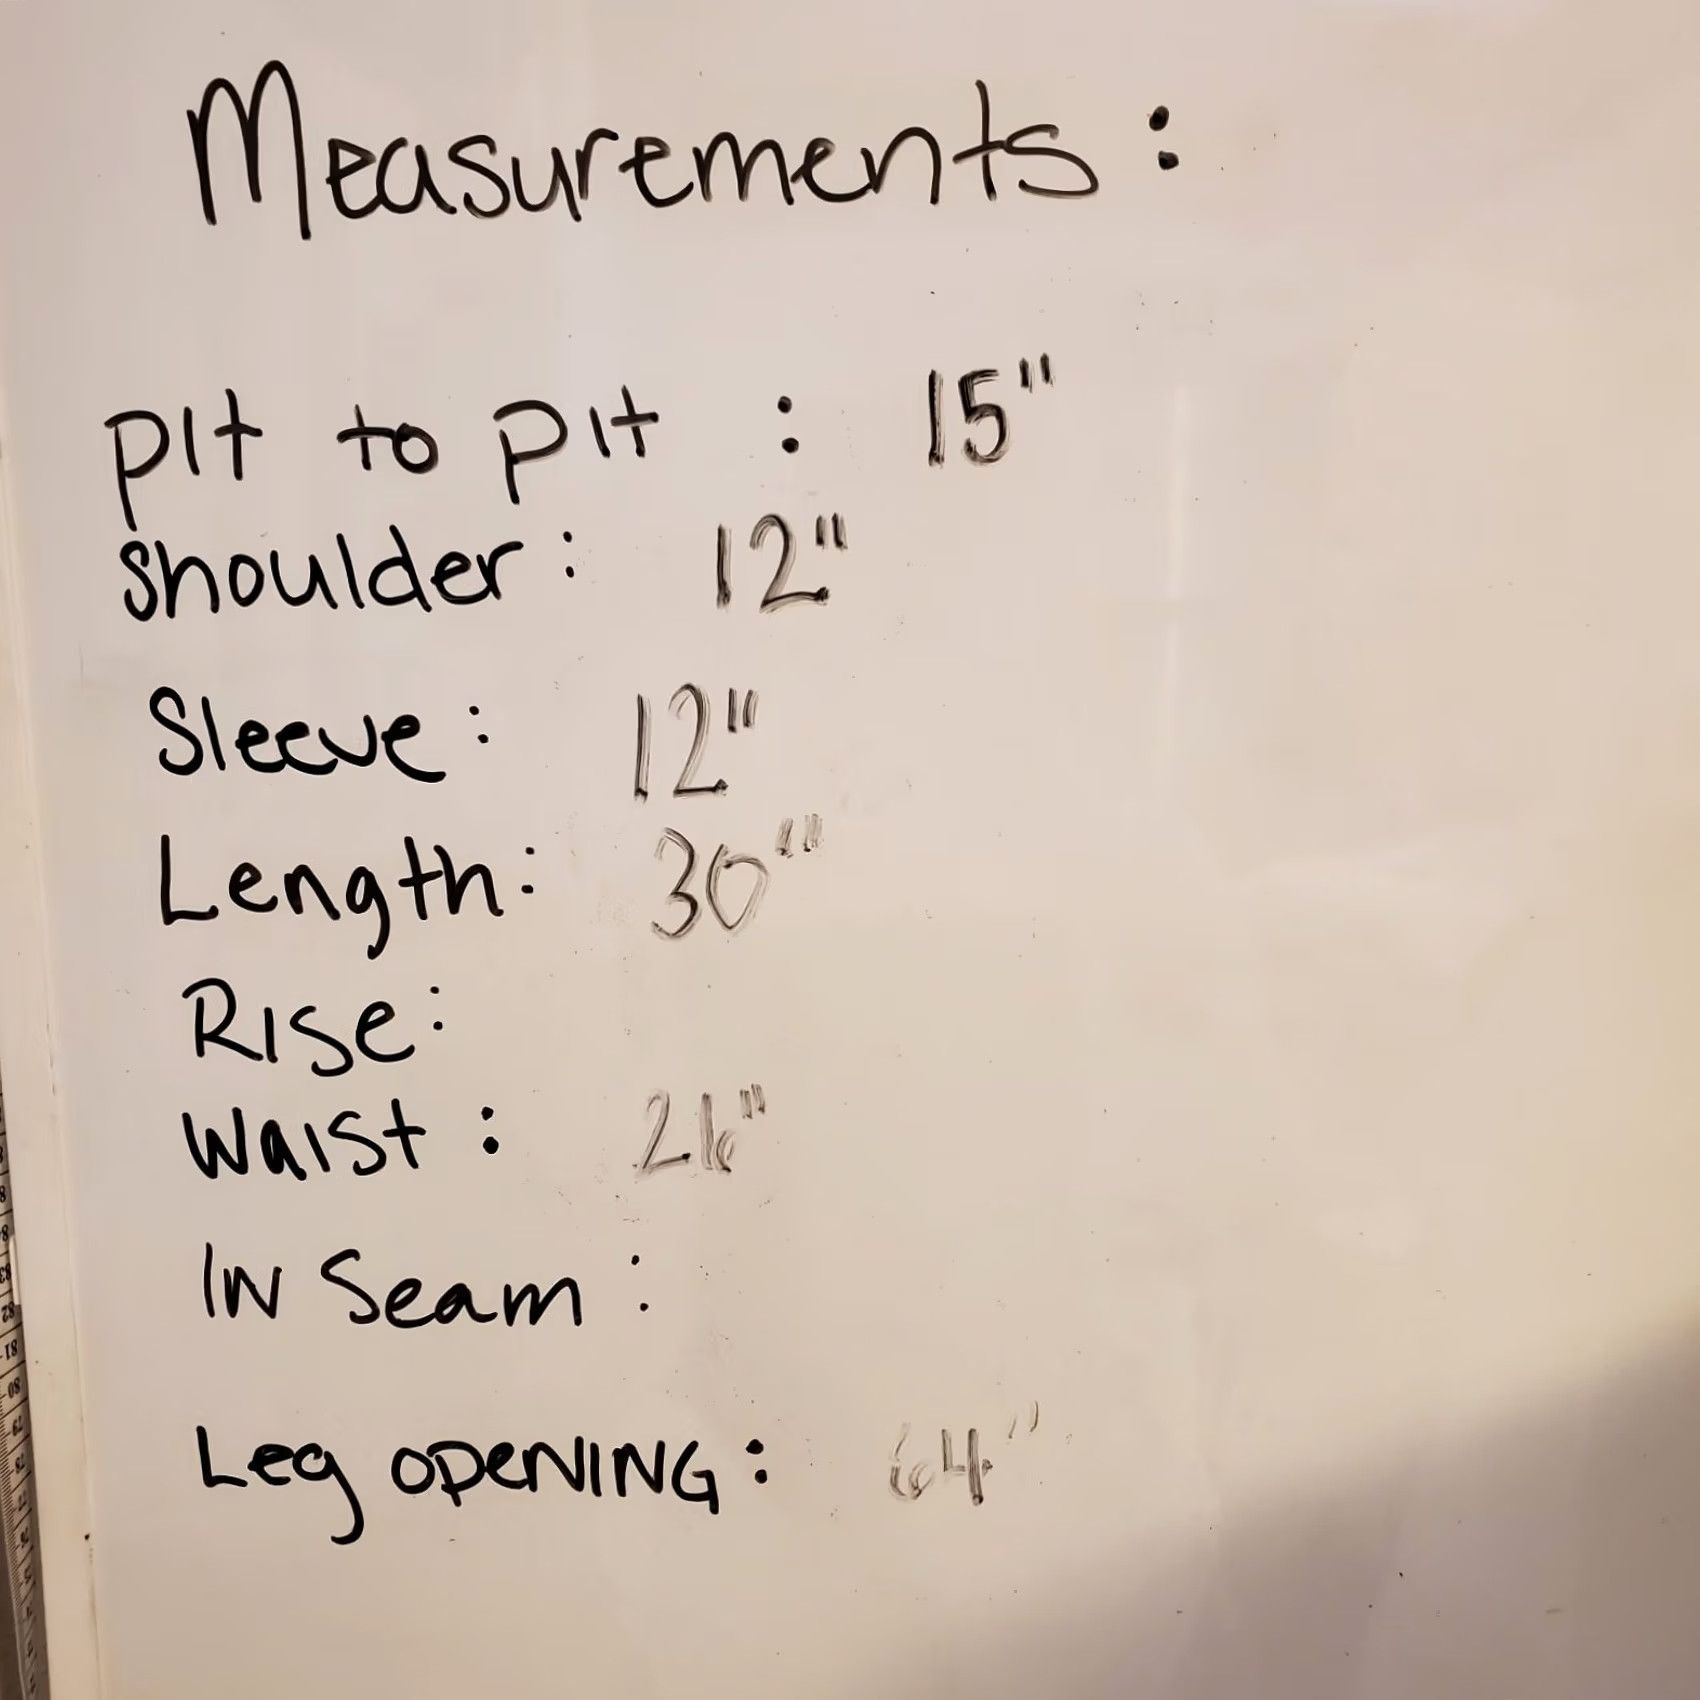 Measurements:
pit to pit : 15"
shoulder: 12"
Sleeve: 12"
Length: 30"
Rise:
Waist: 26"
IN Seam:
Leg OPENING: 64"
83
82
81
80
79